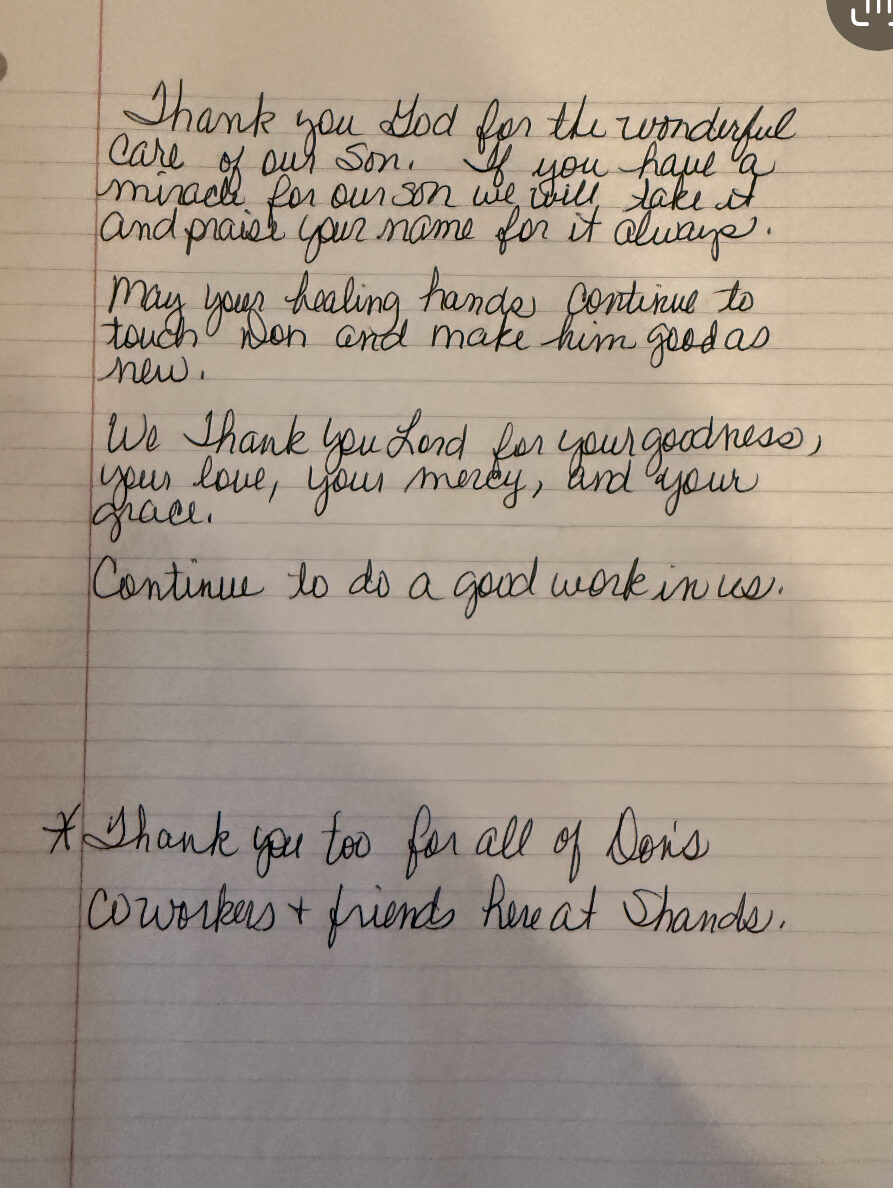 Thank you God for the wonderful
care of our son. If you have a
miracle for our son we will take it
and praise your name for it always.
May your healing hands continue to
touch Don and make him good as
new.
We Thank you Lord for your goodness,
your love, your mercy, and your
grace.
Continue to do a good work in us.
* Thank you too for all of Don's
coworkers + friends here at Shands.